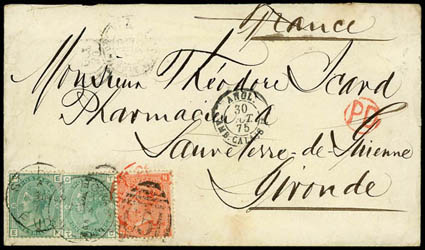 France
Monsieur Théodore Icard
Pharmacien à
Sauveterre-de-Guienne
Gironde
ANGL.
30
75
AMB. CALAIS
PD